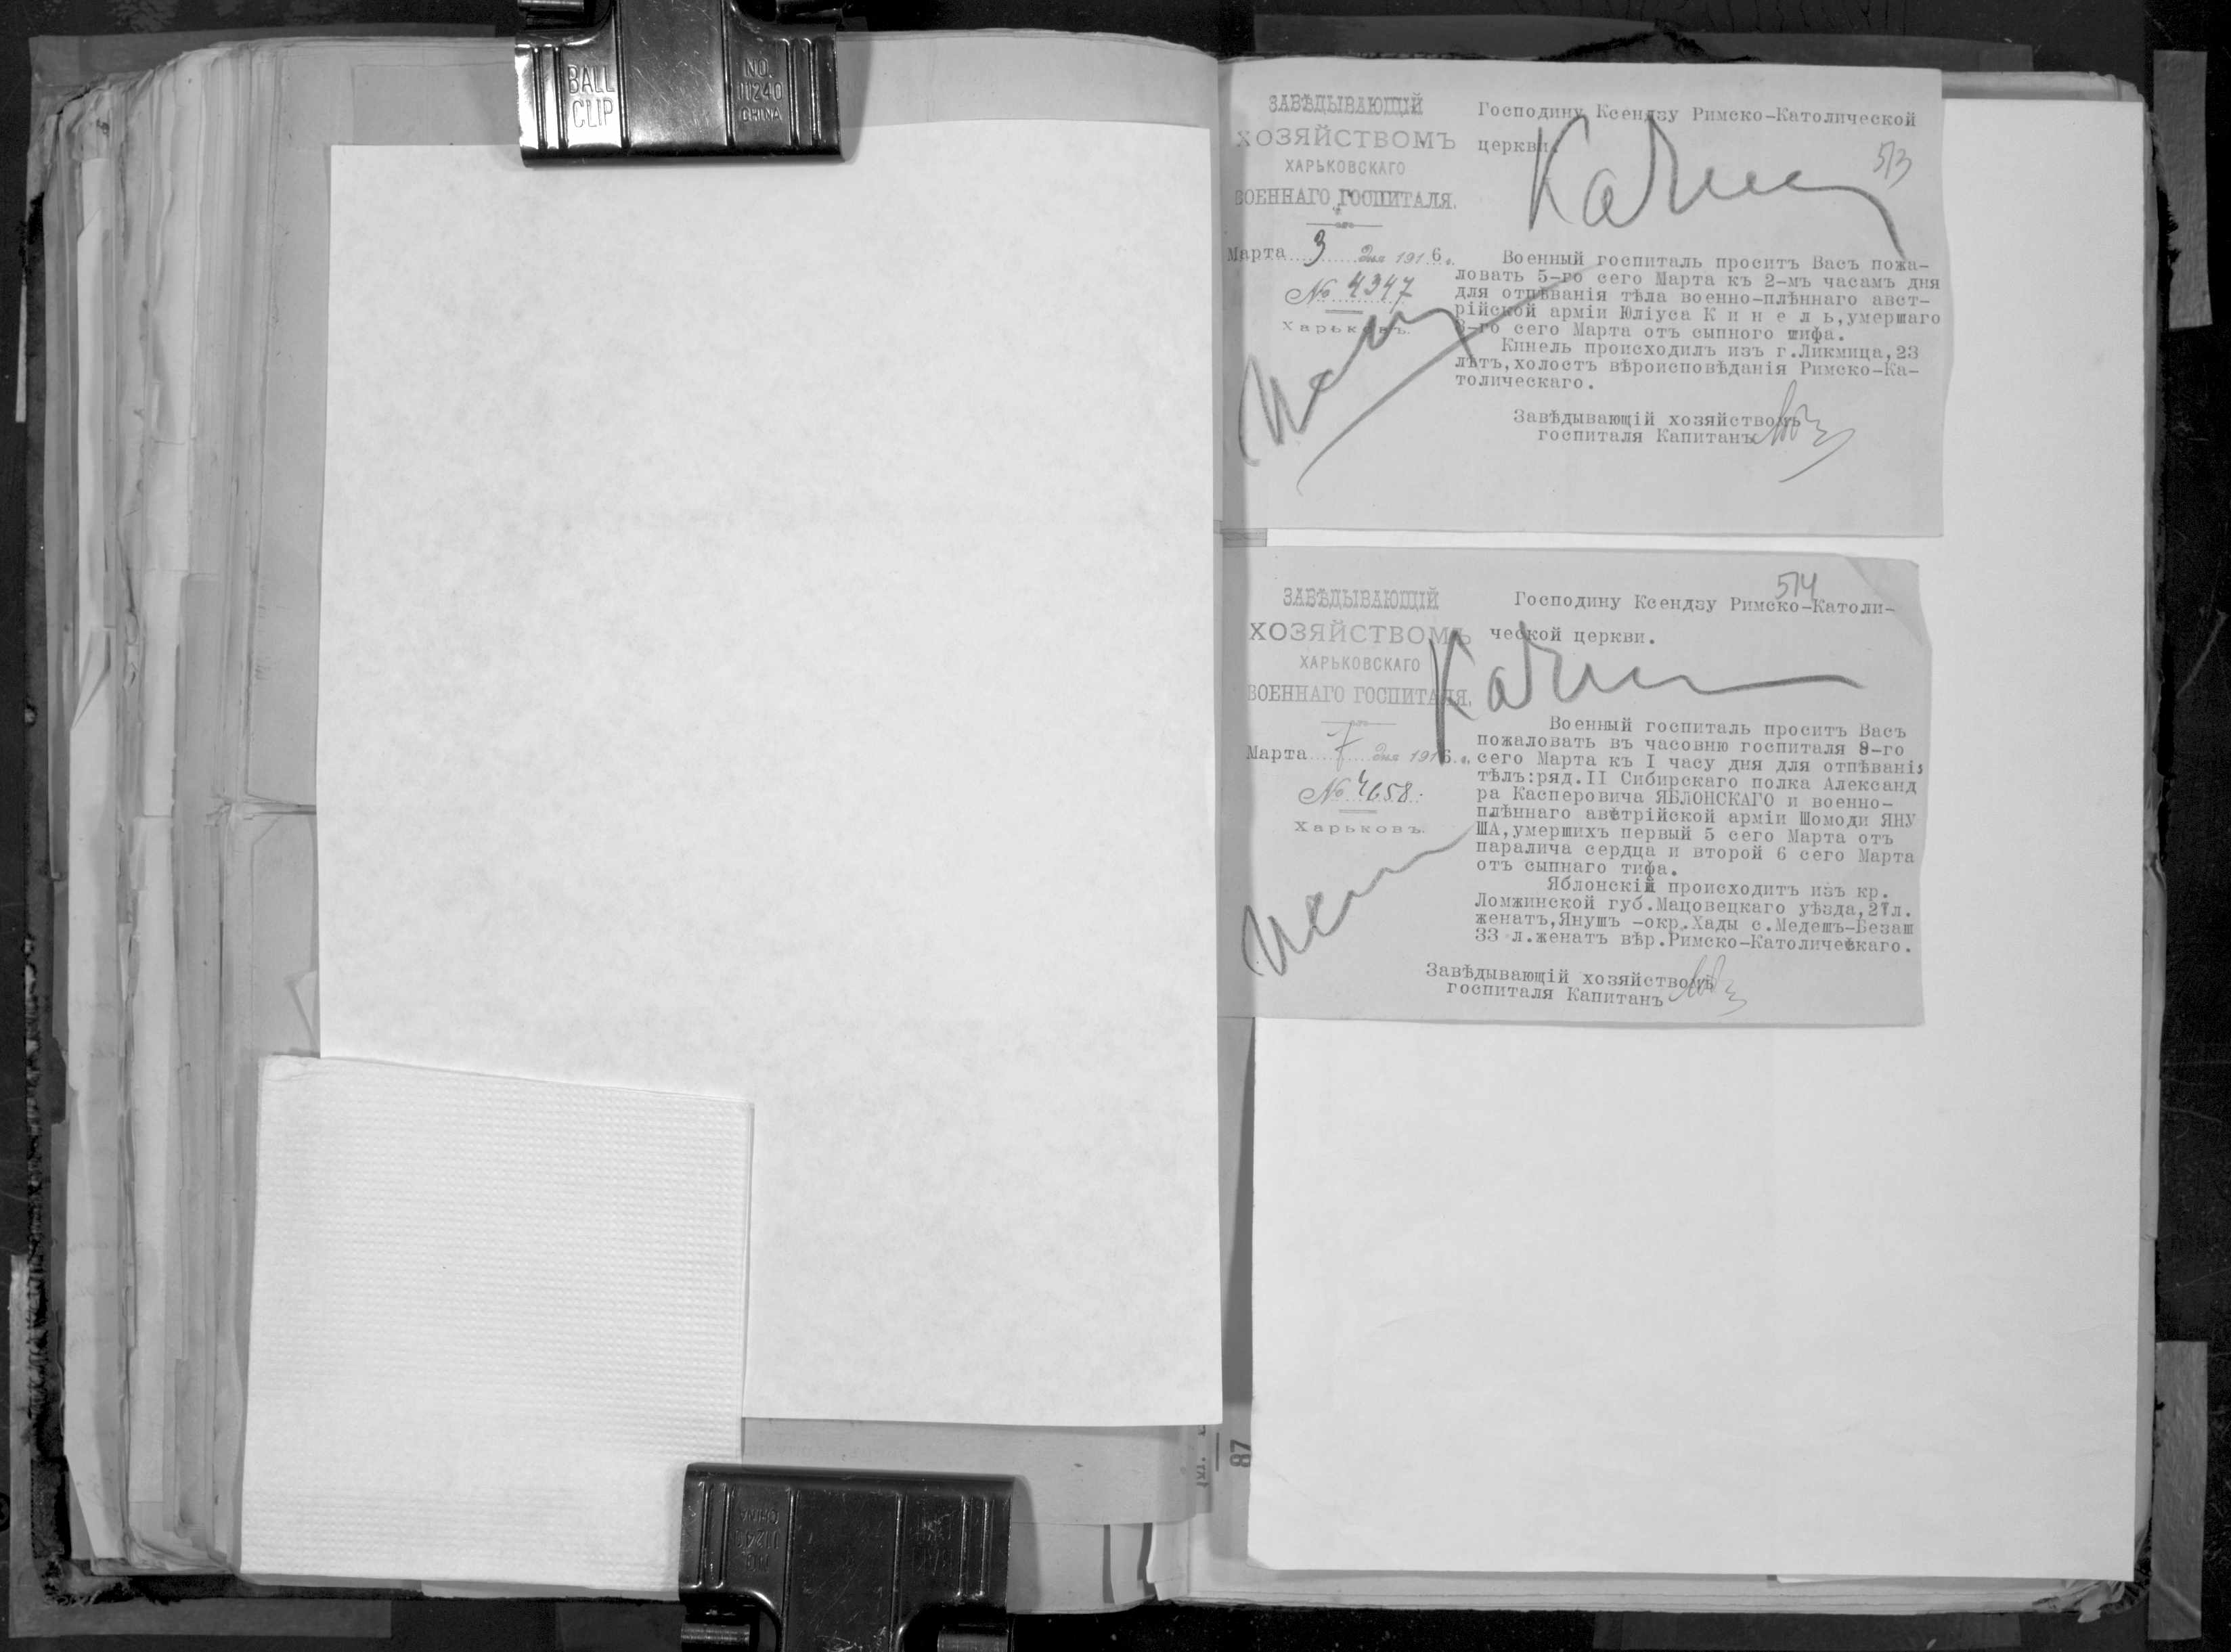 BALL
CLIP
NO.
11240
CHINA
ЗАВѢДЫВАЮЩІЙ
ХОЗЯЙСТВОМЪ
ХАРЬКОВСКАГО
ВОЕННАГО ГОСПИТАЛЯ.
Марта 3 дня 1916 г.
№ 4347
Харьковъ.
Господину Ксендзу Римско-Католической
церкви.
513
Военный госпиталь проситъ Васъ пожа-
ловать 5-го сего Марта къ 2-мъ часамъ дня
для отпѣванія тѣла военно-плѣннаго авст-
рійской арміи Юліуса К и н е л ь,умершаго
3-го сего Марта отъ сыпного тифа.
Кинель происходилъ изъ г.Ликмица,23
лѣтъ,холостъ вѣроисповѣданія Римско-Ка-
толическаго.
Завѣдывающій хозяйствомъ
госпиталя Капитанъ
514
ЗАВѢДЫВАЮЩІЙ
ХОЗЯЙСТВОМЪ
ХАРЬКОВСКАГО
ВОЕННАГО ГОСПИТАЛЯ.
Марта 7 дня 1916 г.
№ 4658.
Харьковъ.
Господину Ксендзу Римско-Католи-
ческой церкви.
Военный госпиталь проситъ Васъ
пожаловать въ часовню госпиталя 8-го
сего Марта къ I часу дня для отпѣванія
тѣлъ:ряд.II Сибирскаго полка Александ
ра Касперовича ЯБЛОНСКАГО и военно-
плѣннаго австрійской арміи Шомоди ЯНУ
ША,умершихъ первый 5 сего Марта отъ
паралича сердца и второй 6 сего Марта
отъ сыпнаго тифа.
Яблонскій происходитъ изъ кр.
Ломжинской губ.Мацовецкаго уѣзда,27л.
женатъ,Янушъ -окр.Хады с.Медешъ-Безаш
33 л.женатъ вѣр.Римско-Католическаго.
Завѣдывающій хозяйствомъ
госпиталя Капитанъ
87
CHINA
11240
NO.